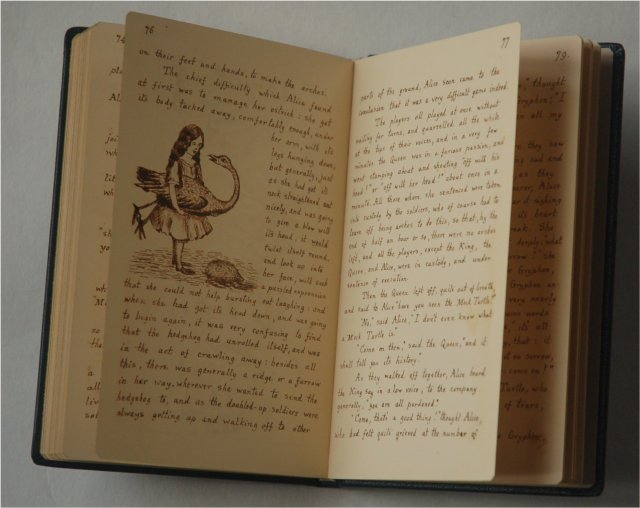 76
on their feet and hands, to make the arches.
The chief difficulty which Alice found
at first was to manage her ostrich: she got
its body tucked away, comfortably enough, under
her arm, with its
legs hanging down,
but generally, just
as she had got its
neck straightened out
nicely, and was going
to give a blow with
its head, it would
twist itself round,
and look up into
her face, with such
a puzzled expression
that she could not help bursting out laughing: and
when she had got its head down, and was going
to begin again, it was very confusing to find
that the hedgehog had unrolled itself, and was
in the act of crawling away: besides all
this, there was generally a ridge or a furrow
in her way, wherever she wanted to send the
hedgehog to, and as the doubled-up soldiers were
always getting up and walking off to other
77
parts of the ground, Alice soon came to the
conclusion that it was a very difficult game indeed.
The players all played at once without
waiting for turns, and quarrelled all the while
at the tops of their voices, and in a very few
minutes the Queen was in a furious passion, and
went stamping about and shouting "off with his
head!" or "off with her head!" about once in a
minute. All those whom she sentenced were taken
into custody by the soldiers, who of course had to
leave off being arches to do this, so that, by the
end of half an hour or so, there were no arches
left, and all the players, except the King, the
Queen, and Alice, were in custody, and under
sentence of execution.
Then the Queen left off, quite out of breath,
and said to Alice "have you seen the Mock Turtle?"
"No," said Alice, "I don't even know what
a Mock Turtle is."
"Come on then," said the Queen, "and it
shall tell you its history."
As they walked off together, Alice heard
the King say in a low voice, to the company
generally, "you are all pardoned."
"Come, that's a good thing!" thought Alice,
who had felt quite grieved at the number of
79
thought
Gryphon, "I
in all my
they saw
said and
as they
Alice
sighing
its heart
She
deeply:
she
Gryphon,
very nearly
words
"it's all
that: it
no sorrow,
come on!"
Turtle, who
of tears,
Gryphon,